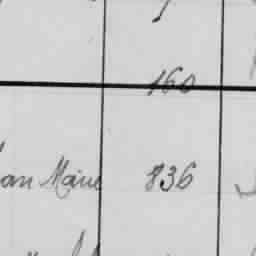 160
an Marie 836